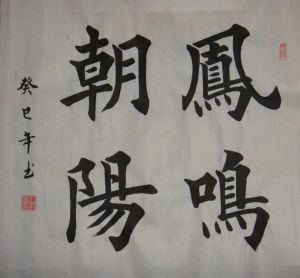 鳳鳴
朝陽
癸巳年书